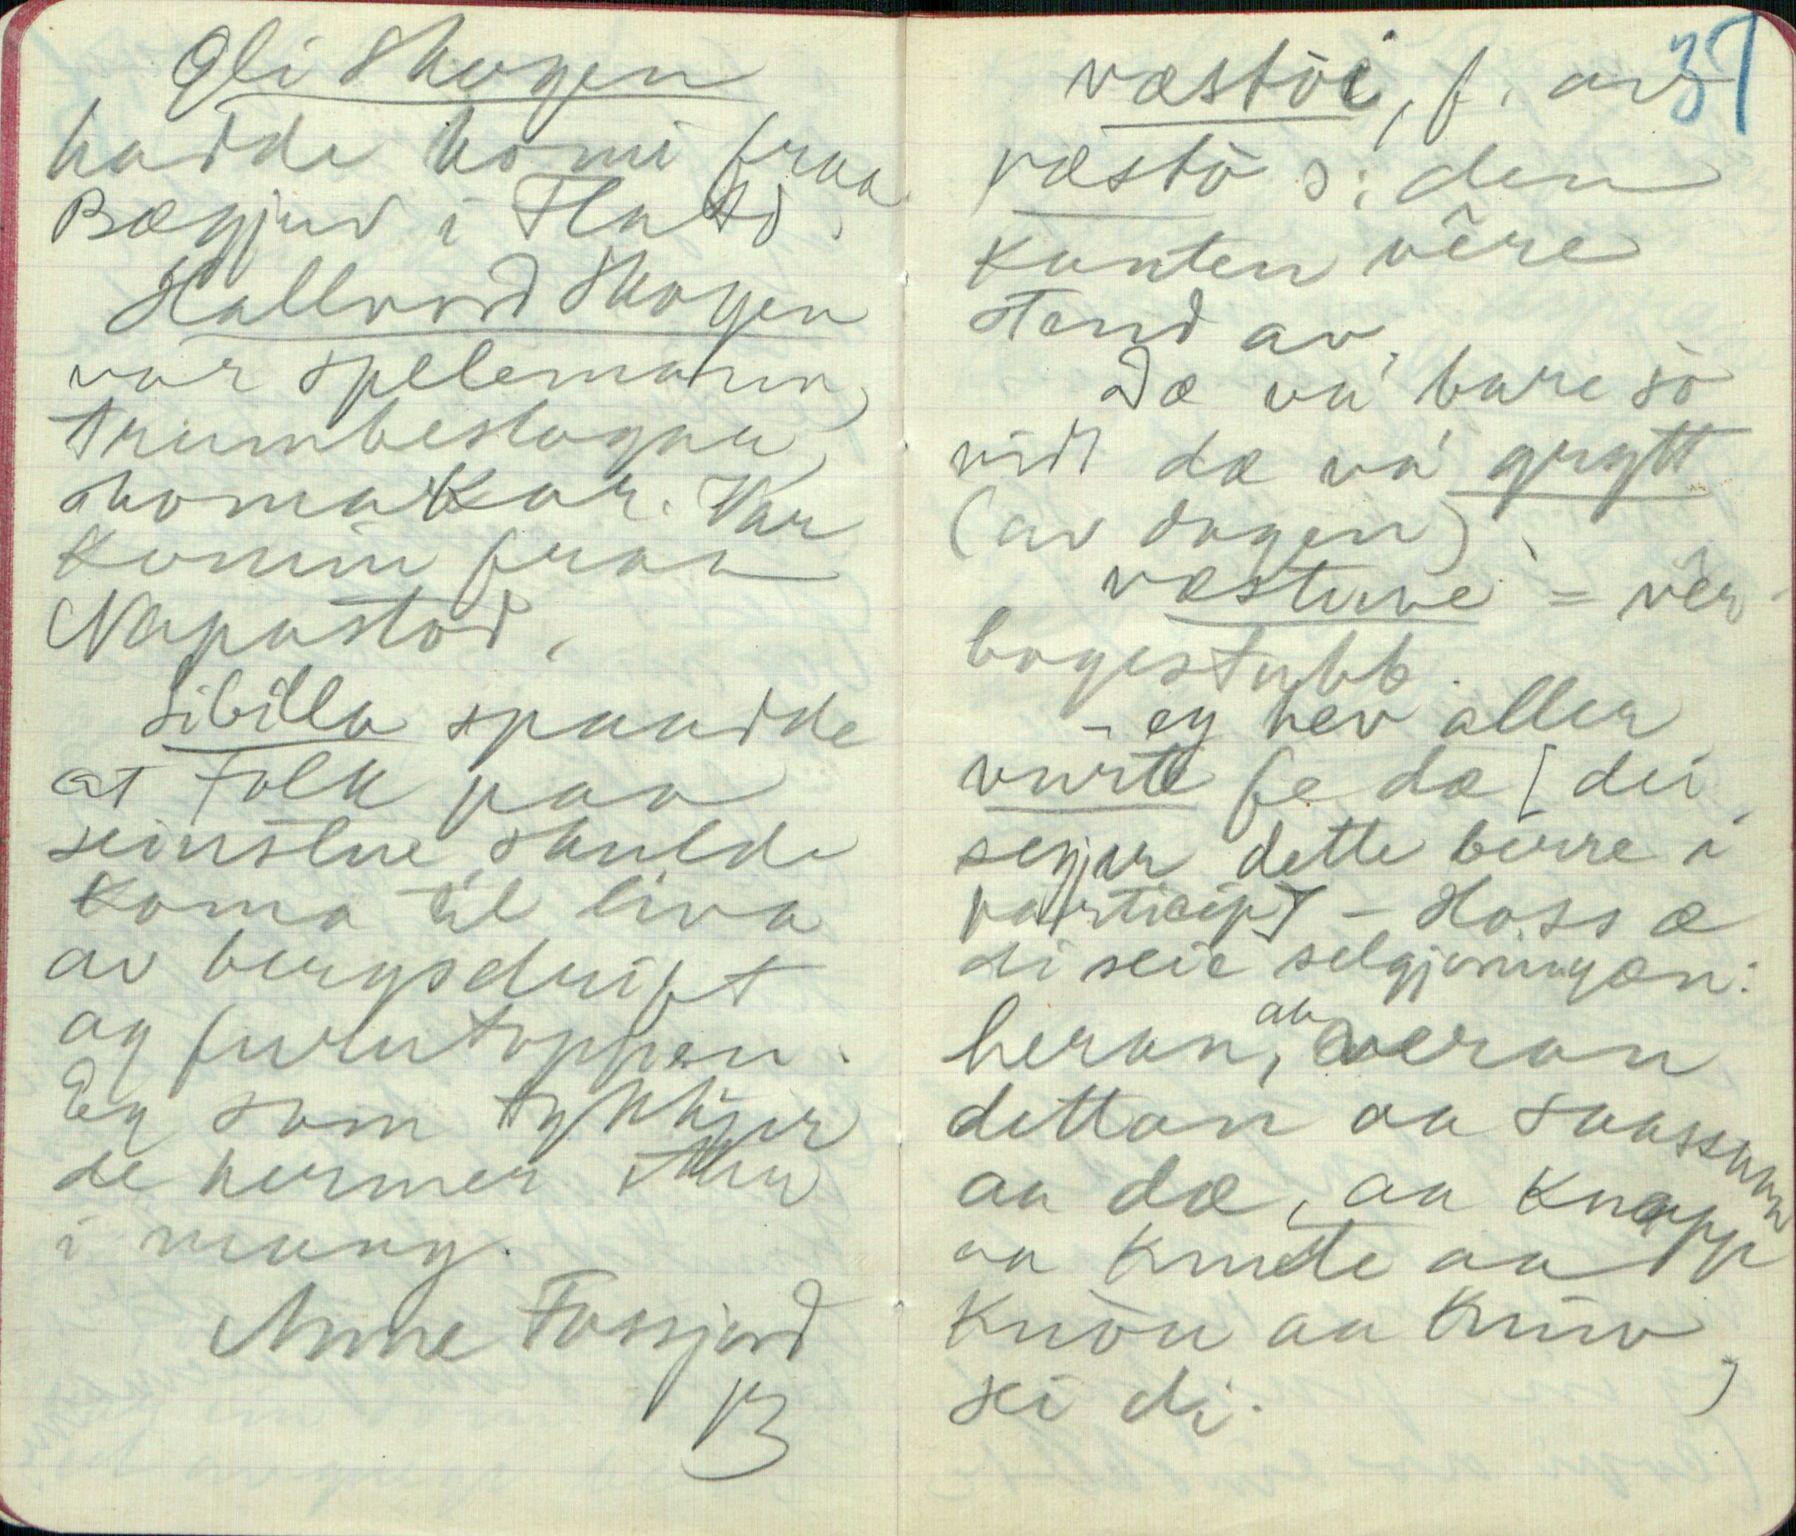 Oli Skogen
hadde komi fraa
Bægjuv i Flatd.
Hallvord Skogen
var spelemann,
trumbeslagar,
skomakar. Var
komin fraa
Napastod.
Sibilla spaadde
at Folk paa
seinstne skulde
koma til liva
av bergsdrift
og furutoppen.
Eg som tykkjer
de kermer
i mang.
Anne Fossjord
B
37
væstöi, f. av
væstö ɔ: den
kanten vêre
stend av.
Dæ va' bare sò
vidt dæ va' grytt
(av dagen).
væstuve = vêr
bogestubb.
– eg hev aller
vurte fe dæ [dei
segjer dette berre i
particip] – Hoss æ
di seie selgjeringæn:
heran, aa veran
dettan aa saassann
aa dæ, aa knapp
aa knute aa
knòu aa kniv
sei di.